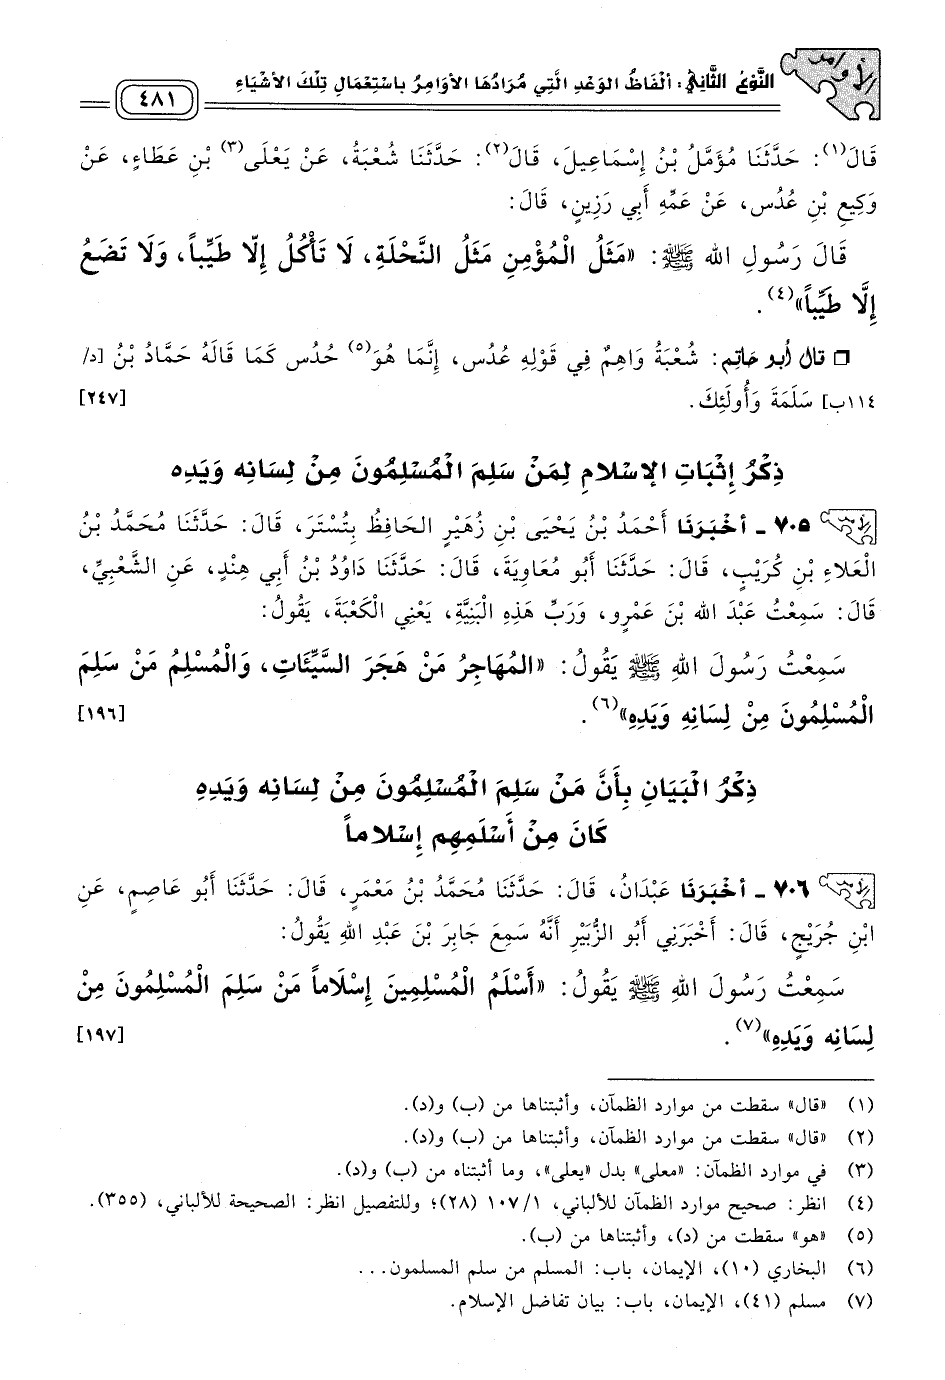 الأوامر
النَّوْعُ الثَّانِي: ألْفَاظُ الوَعْدِ الَّتِي مُرَادُهَا الأوَامِرُ بِاسْتِعْمَالِ تِلْكَ الأشْيَاءِ
٤٨١
قَالَ(١): حَدَّثَنَا مُؤَمَّلُ بْنُ إِسْمَاعِيلَ، قَالَ(٢): حَدَّثَنَا شُعْبَةُ، عَنْ يَعْلَى(٣) بْنِ عَطَاءٍ، عَنْ
وَكِيعِ بْنِ عُدُسٍ، عَنْ عَمِّهِ أَبِي رَزِينٍ، قَالَ:
قَالَ رَسُولِ الله ﷺ: «مَثَلُ الْمُؤْمِنِ مَثَلُ النَّحْلَةِ، لَا تَأْكُلُ إِلّا طَيِّباً، وَلَا تَضَعُ
إِلَّا طَيِّباً»(٤).
□ قال أبو حَاتِم: شُعْبَةُ وَاهِمٌ فِي قَوْلِهِ عُدُس، إِنَّمَا هُوَ(٥) حُدُس كَمَا قَالَهُ حَمَّادُ بْنُ [د/
١١٤ب] سَلَمَةَ وَأُولَئِكَ. [٢٤٧]
ذِكْرُ إِثْبَاتِ الإسْلامِ لِمَنْ سَلِمَ الْمُسْلِمُونَ مِنْ لِسَانِه وَيَدِه
٧٠٥ ـ أخْبَرَنَا أَحْمَدُ بْنُ يَحْيَى بْنِ زُهَيْرٍ الحَافِظُ بِتُسْتَرَ، قَالَ: حَدَّثَنَا مُحَمَّدُ بْنُ
العَلاءِ بْنِ كُرَيْبٍ، قَالَ: حَدَّثَنَا أَبُو مُعَاوِيَةَ، قَالَ: حَدَّثَنَا دَاوُدُ بْنُ أَبِي هِنْدٍ، عَنِ الشَّعْبِيِّ،
قَالَ: سَمِعْتُ عَبْدَ الله بْنَ عَمْرٍو، وَرَبِّ هَذِهِ الْبَنِيَّةِ، يَعْنِي الْكَعْبَةَ، يَقُولُ:
سَمِعْتُ رَسُولَ اللهِ ﷺ يَقُولُ: «الْمُهَاجِرُ مَنْ هَجَرَ السَّيِّئَاتِ، وَالْمُسْلِمُ مَنْ سَلِمَ
الْمُسْلِمُونَ مِنْ لِسَانِهِ وَيَدِهِ»(٦). [١٩٦]
ذِكْرُ الْبَيَانِ بِأَنَّ مَنْ سَلِمَ الْمُسْلِمُونَ مِنْ لِسَانِه وَيَدِهِ
كَانَ مِنْ أَسْلَمِهِم إِسْلاماً
٧٠٦ ـ أخْبَرَنَا عَبْدَانُ، قَالَ: حَدَّثَنَا مُحَمَّدُ بْنُ مَعْمَرٍ، قَالَ: حَدَّثَنَا أَبُو عَاصِمٍ، عَنِ
ابْنِ جُرَيْجٍ، قَالَ: أَخْبَرَنِي أَبُو الزُّبَيْرِ أَنَّهُ سَمِعَ جَابِرَ بْنَ عَبْدِ اللهِ يَقُولُ:
سَمِعْتُ رَسُولَ اللهِ ﷺ يَقُولُ: «أَسْلَمُ الْمُسْلِمِينَ إِسْلَاماً مَنْ سَلِمَ الْمُسْلِمُونَ مِنْ
لِسَانِه وَيَدِهِ»(٧). [١٩٧]
(١) «قال» سقطت من موارد الظمآن، وأثبتناها من (ب) و(د).
(٢) «قال» سقطت من موارد الظمآن، وأثبتناها من (ب) و(د).
(٣) في موارد الظمآن: «معلى» بدل «يعلى»، وما أثبتناه من (ب) و(د).
(٤) انظر: صحيح موارد الظمآن للألباني، ١/ ١٠٧ (٢٨)؛ وللتفصيل انظر: الصحيحة للألباني، (٣٥٥).
(٥) «هو» سقطت من (د)، وأثبتناها من (ب).
(٦) البخاري (١٠)، الإيمان، باب: المسلم من سلم المسلمون...
(٧) مسلم (٤١)، الإيمان، باب: بيان تفاضل الإسلام.